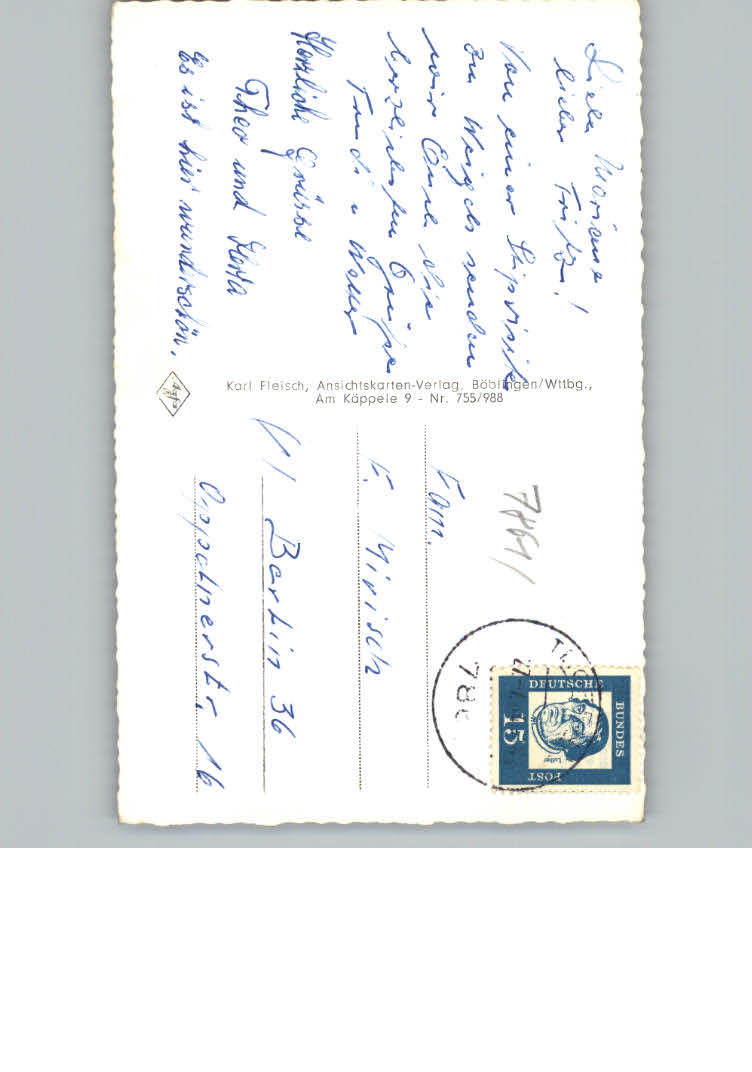 Liebe Mariane
lieber Fritz!
Von einer Stipvisite
zu Weigels senden
wir Euch die
herzlichsten Grüße
Trudi u
Herzliche Grüsse
Theo und Herta
Es ist hier wunderschön.
Agfa
Karl Fleisch, Ansichtskarten-Verlag, Böblingen/Wttbg.,
Am Käppele 9 - Nr. 755/988
7861
Fam.
F.
1/ Berlin 36
Oppelnerstr. 16
DEUTSCHE
BUNDES
POST
15
Luther
786